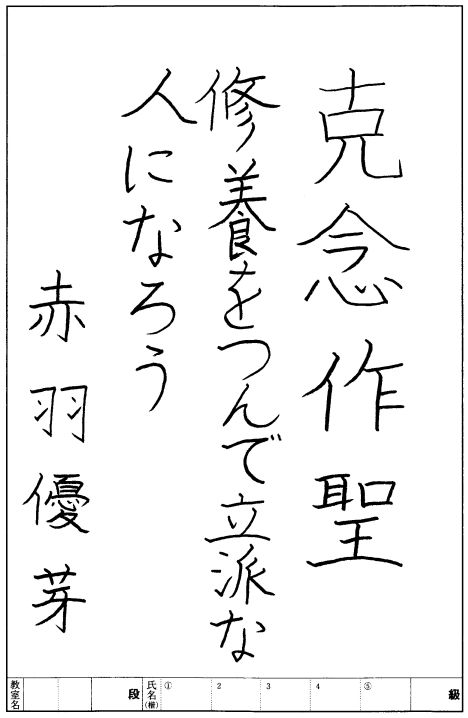 克念作聖
修養をつんで立派な
人になろう
赤羽優芽
教室名 段 氏名(権) ① 2 3 4 ⑤ 級